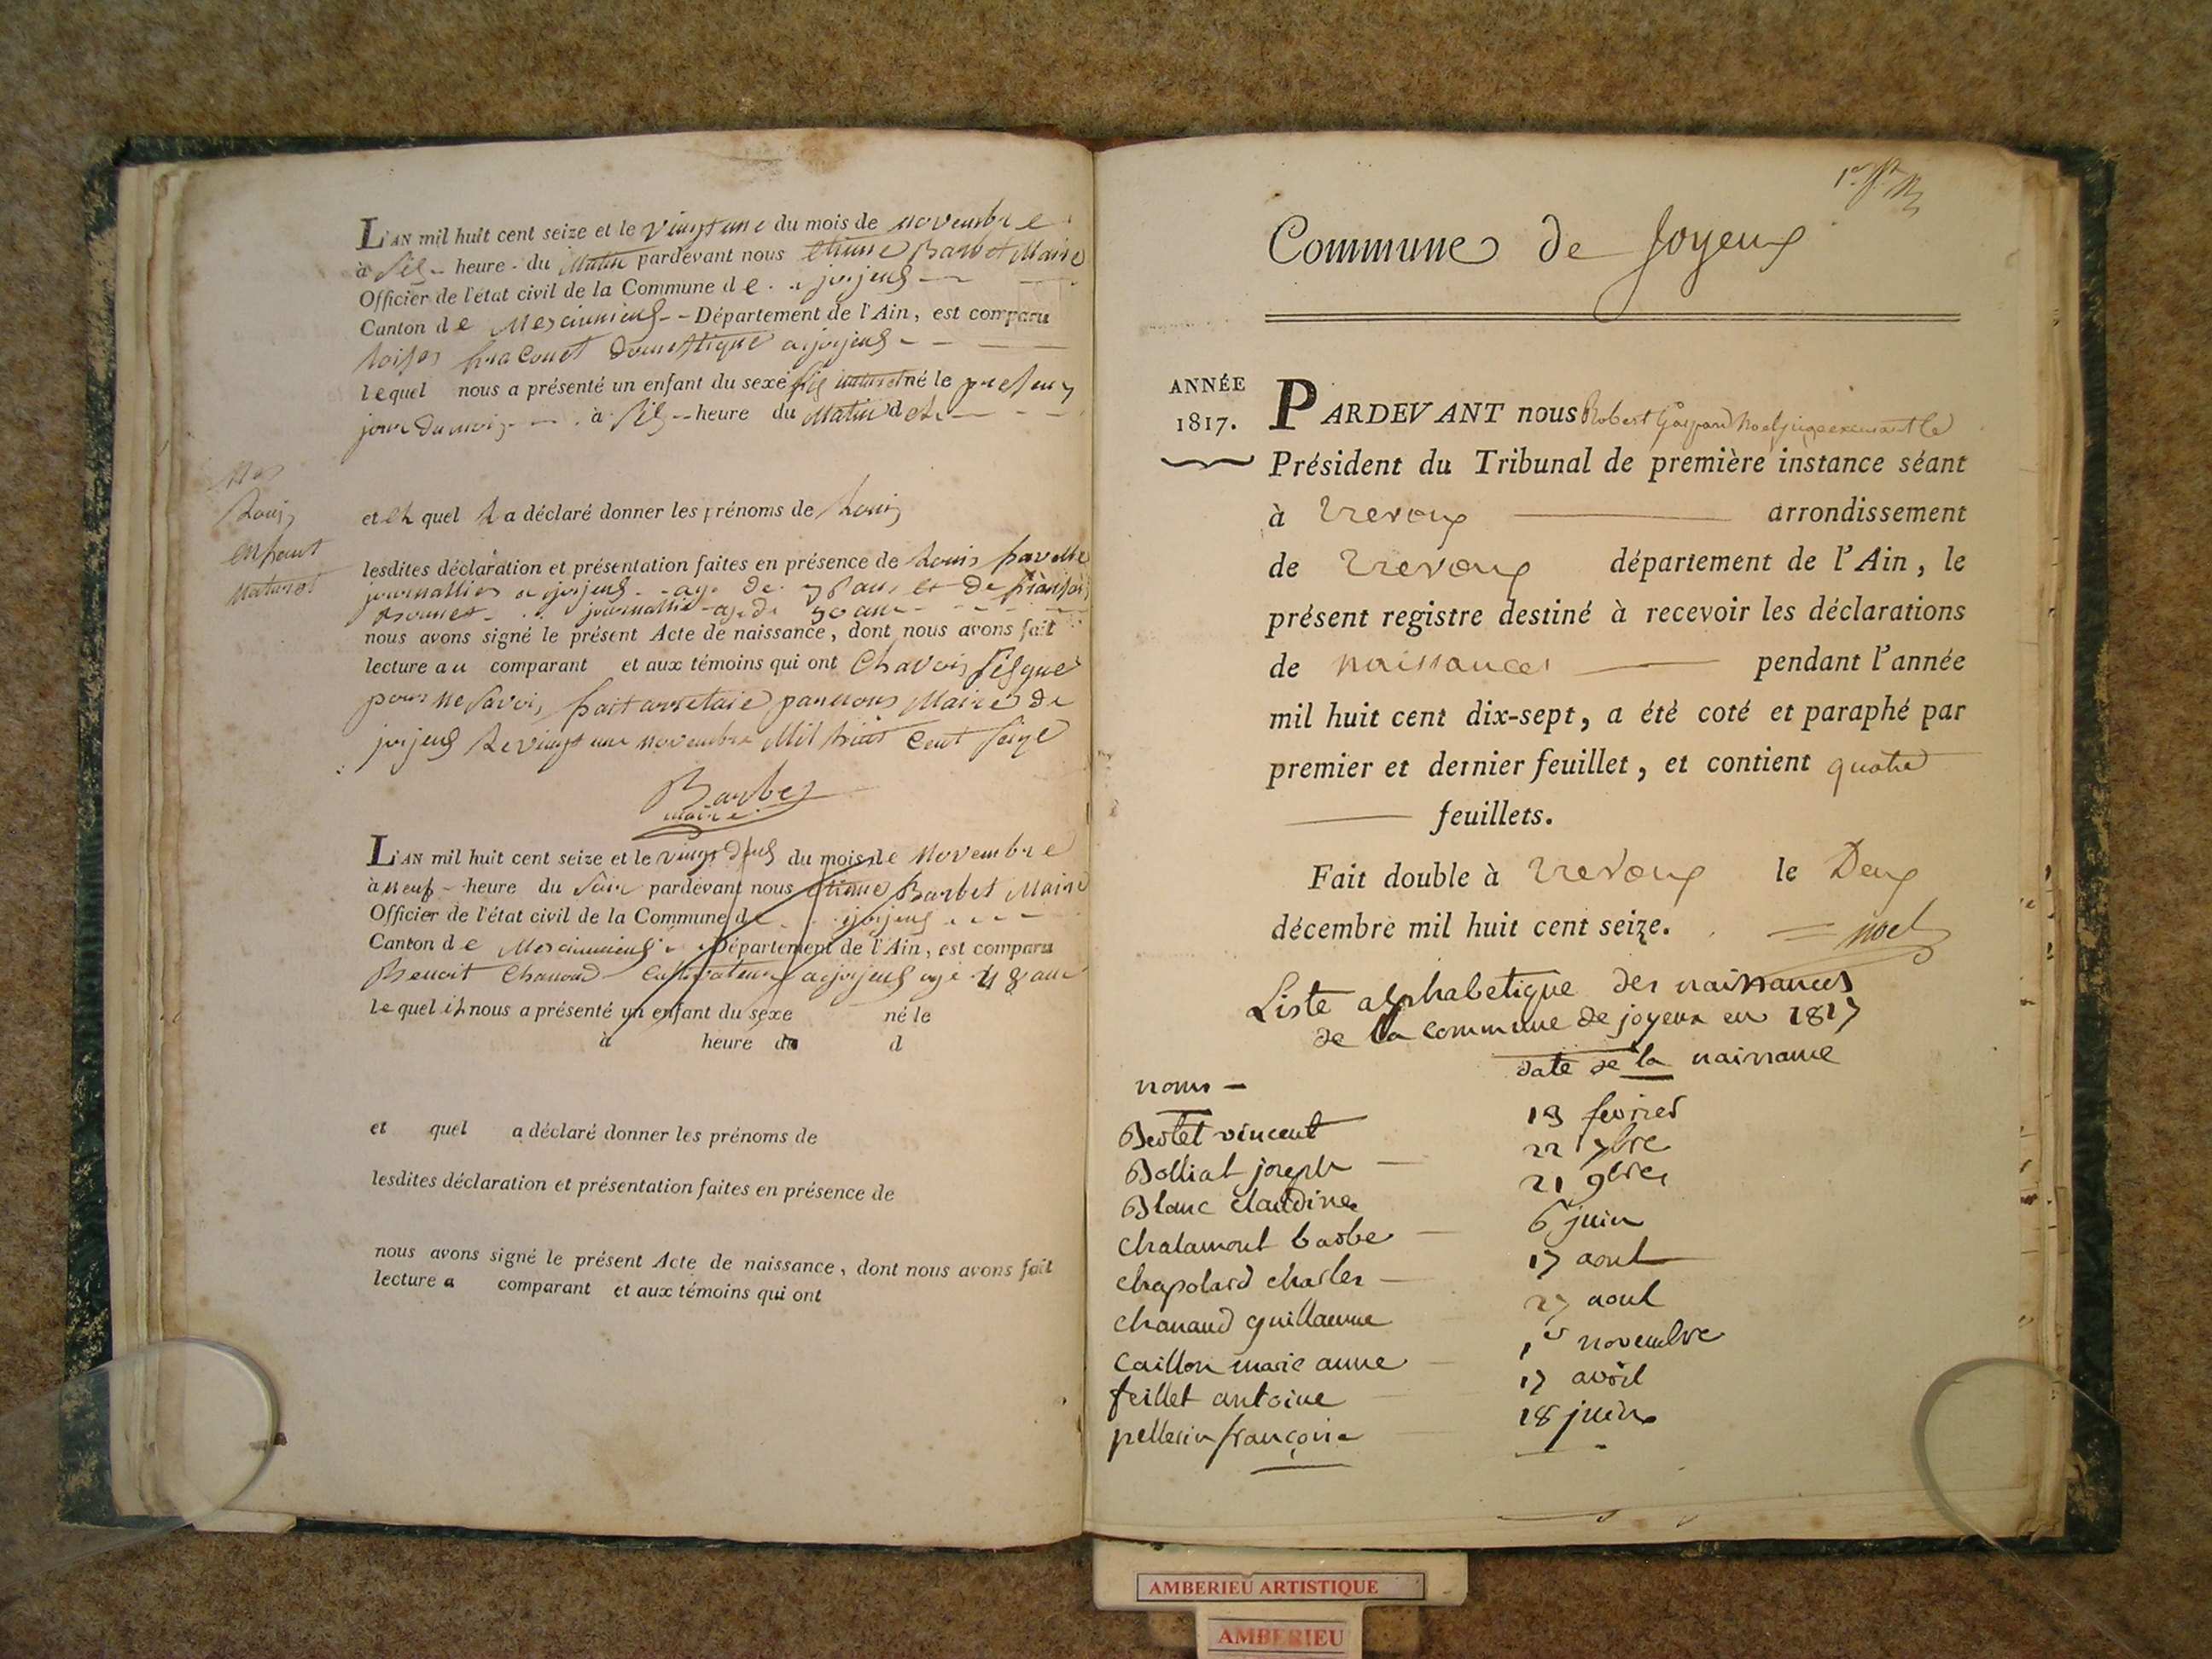 L'AN mil huit cent seize et le vingt une du mois de novembre
à sis heure du Matin pardevant nous etienne Barbet Maire
Officier de l'état civil de la Commune de joijeus
Canton de Mescimieus Département de l'Ain, est comparu
domestique a joijeus
lequel nous a présenté un enfant du sexe né le present
jour du mois à sis heure du Matin
Louis
enfant
naturel
et quel il a déclaré donner les prénoms de Louis
lesdites déclaration et présentation faites en présence de Louis
journallier a joijeus age de ans et de françois
journallie age de 50 ans
nous avons signé le présent Acte de naissance, dont nous avons fait
lecture au comparant et aux témoins qui ont
pour ne savoir fait Maire de
joijeus Le vingt une novembre Mil huit Cent seize
Barbet
maire
L'AN mil huit cent seize et le vingt deus du mois de Novembre
à neuf heure du Soir pardevant nous etienne Barbet Maire
Officier de l'état civil de la Commune de joijeus
Canton de Mescimieus Département de l'Ain, est comparu
Benoit Chanaud Cultivateur a joijeus age 48 ans
Lequel il nous a présenté un enfant du sexe né le
à heure du d
et quel a déclaré donner les prénoms de
lesdites déclaration et présentation faites en présence de
nous avons signé le présent Acte de naissance, dont nous avons fait
lecture a comparant et aux témoins qui ont
Commune de Joyeux
ANNÉE
1817.
PARDEVANT nous Robert Gaspard Noel juge exerçant le
Président du Tribunal de première instance séant
à Trevoux arrondissement
de Trevoux département de l'Ain, le
présent registre destiné à recevoir les déclarations
de naissances pendant l'année
mil huit cent dix-sept, a été coté et paraphé par
premier et dernier feuillet, et contient quatre
feuillets.
Fait double à Trevoux le Deux
décembre mil huit cent seize.
noel
Liste alphabetique des naissances
de la commune de joyeux en 1817
noms date de la naissance
Bertet vincent 19 fevrier
Bolliat joseph 22 7bre
Blanc claudine 21 9bre
chalamont barbe 6 juin
chapolard charles 17 aout
chanaud guillaume 27 aout
caillon marie anne 1er novembre
feillet antoine 17 avril
pellerin françoise 18 juin
AMBERIEU ARTISTIQUE
AMBERIEU